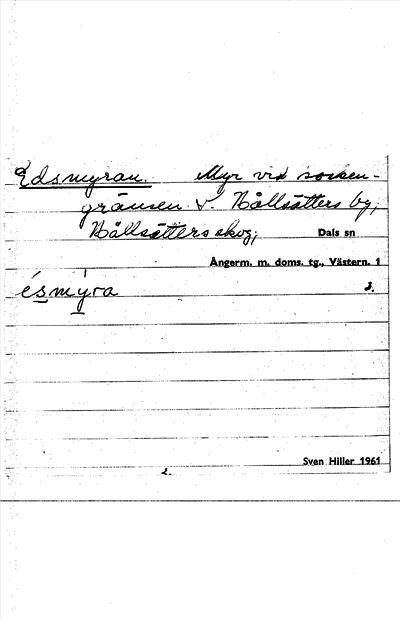 Edsmyran. Myr vid socken-
gränsen V. Hållsätters by;
Hållsätters skog; Dals sn
Ångerm. m. doms. tg., Västern. 1
ésmy̍ra 3.
Sven Hiller 1961
2.